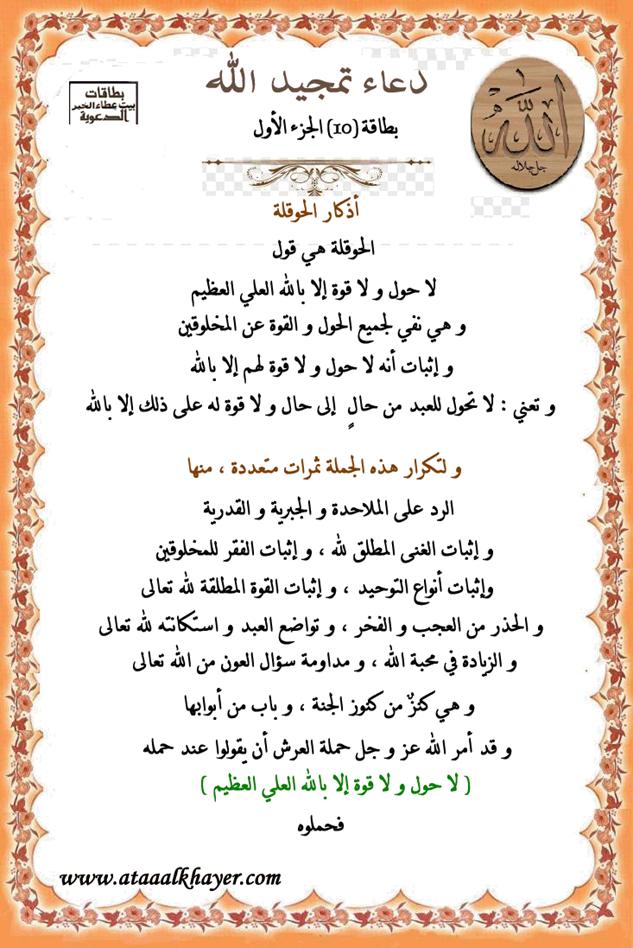 دعاء تمجيد الله
بطاقات
بيت عطاء الخير
الدعوية
الله
جل جلاله
بطاقة (10) الجزء الأول
أذكار الحوقلة
الحوقلة هي قول
لا حول و لا قوة إلا بالله العلي العظيم
و هي نفي لجميع الحول و القوة عن المخلوقين
و إثبات أنه لا حول و لا قوة لهم إلا بالله
و تعني : لا تحول للعبد من حالٍ إلى حال و لا قوة له على ذلك إلا بالله
و لتكرار هذه الجملة ثمرات متعددة ، منها
الرد على الملاحدة و الجبرية و القدرية
و إثبات الغنى المطلق لله ، و إثبات الفقر للمخلوقين
وإثبات أنواع التوحيد ، و إثبات القوة المطلقة لله تعالى
و الحذر من العجب و الفخر ، و تواضع العبد و استكانته لله تعالى
و الزيادة في محبة الله ، و مداومة سؤال العون من الله تعالى
و هي كنزٌ من كنوز الجنة ، و باب من أبوابها
و قد أمر الله عز و جل حملة العرش أن يقولوا عند حمله
( لا حول و لا قوة إلا بالله العلي العظيم )
فحملوه
www.ataaalkhayer.com